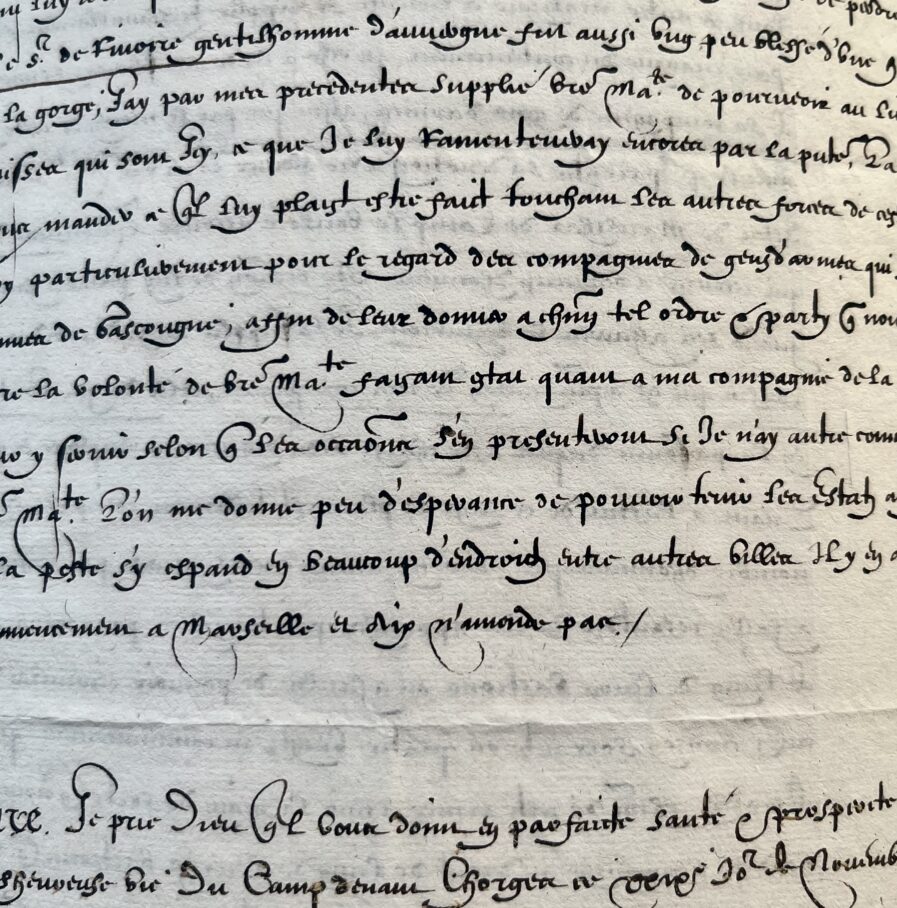 de Rivoire gentilhomme d'auvergne fut aussi ung peu blessé d'une
la gorge, J'ay par mes precedentes supplié vre Ma.te de pourveoir au
qui sont Icy, ce que Je luy Ramenteuvray encores par la pnte, La
mander ce ql luy plaist estre faict touchant les autres forces de ces
particulierement pour le regard des compagnies de gensdarmes qui
de Gascougne, affin de leur donner a chun tel ordre & party q nou
re la volonté de vre Ma.te faisant estat quant a ma compagnie de la
y servir selon q les occaõns s'en presenteront si Je n'ay autre com
Ma.te L'on me donne peu d'esperance de pouvoir tenir les Estatz
la peste s'y espand en beaucoup d'endroictz entre autres villes Il y en a
mencement a Marseille et Aix n'amende pas./
Je prie Dieu ql vous doint en parfaicte santé & prosperite
heureuse vie Du Camp devant Chorges ce xxixe Jor de Novemb